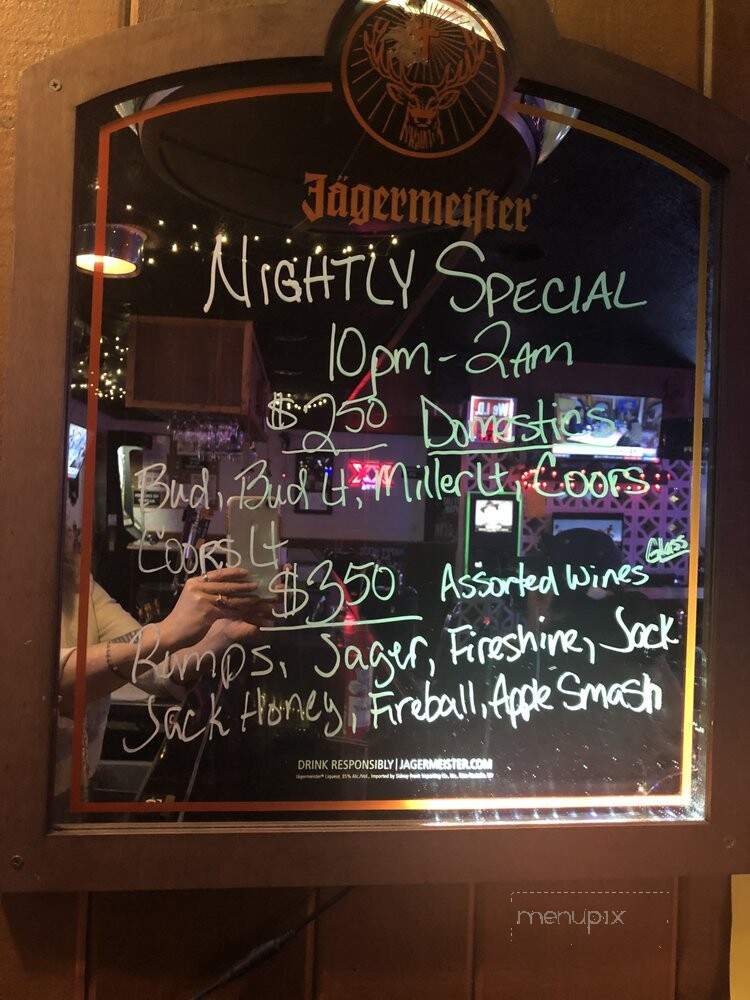 Jägermeister
NIGHTLY SPECIAL
10pm - 2AM
$250 Domestics
Bud, Bud Lt, Miller Lt, Coors
Coors Lt
$350 Assorted Wines Glass
Rumps, Jager, Fireshine, Jack
Jack Honey, Fireball, Apple Smash
DRINK RESPONSIBLY | JAGERMEISTER.COM
menupix